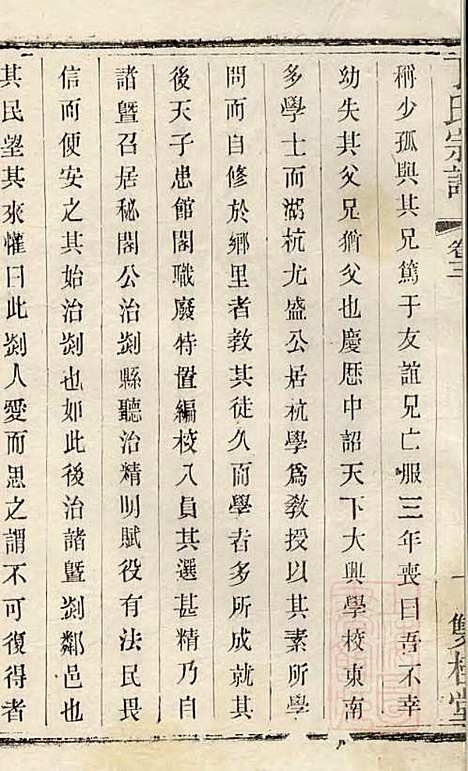 丁氏宗譜
卷三
一
雙桂堂
稱少孤與其兄篤于友誼兄亡服三年喪曰吾不幸
幼失其父兄猶父也慶歷中詔天下大興學校東南
多學士而湖杭尤盛公居杭學爲教授以其素所學
問而自修於鄉里者教其徒久而學者多所成就其
後天子患館閣職廢特置編校八員其選甚精乃自
諸曁召居秘閣公治剡縣聽治精明賦役有法民畏
信而便安之其始治剡也如此後治諸曁剡鄰邑也
其民望其來懽曰此剡人愛而思之謂不可復得者